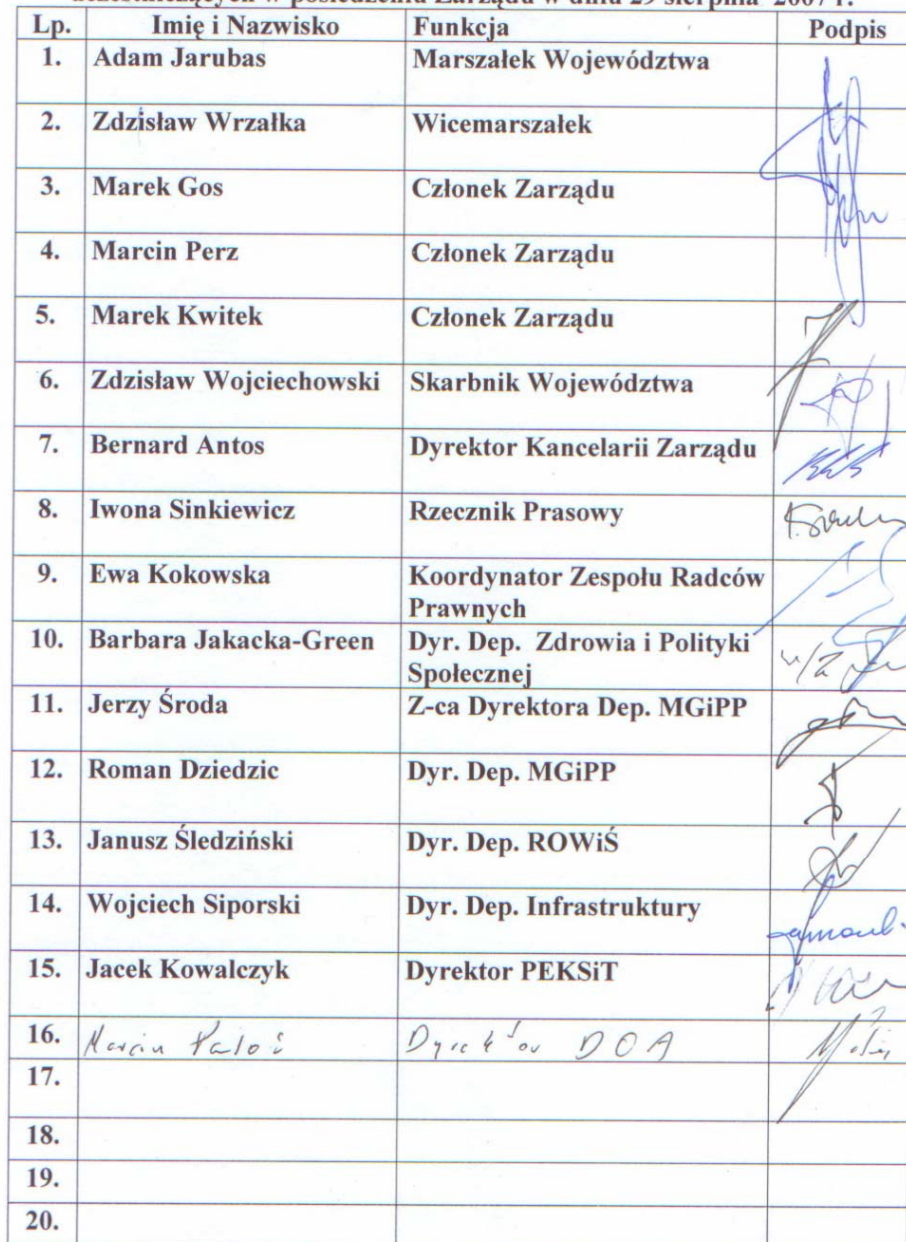 uczestniczących w posiedzeniu Zarządu w dniu 29 sierpnia 2007 r.
Lp. Imię i Nazwisko Funkcja Podpis
1. Adam Jarubas Marszałek Województwa
2. Zdzisław Wrzałka Wicemarszałek
3. Marek Gos Członek Zarządu
4. Marcin Perz Członek Zarządu
5. Marek Kwitek Członek Zarządu
6. Zdzisław Wojciechowski Skarbnik Województwa
7. Bernard Antos Dyrektor Kancelarii Zarządu
8. Iwona Sinkiewicz Rzecznik Prasowy
9. Ewa Kokowska Koordynator Zespołu Radców
Prawnych
10. Barbara Jakacka-Green Dyr. Dep. Zdrowia i Polityki
Społecznej
11. Jerzy Środa Z-ca Dyrektora Dep. MGiPP
12. Roman Dziedzic Dyr. Dep. MGiPP
13. Janusz Śledziński Dyr. Dep. ROWiŚ
14. Wojciech Siporski Dyr. Dep. Infrastruktury
15. Jacek Kowalczyk Dyrektor PEKSiT
16. Marcin Dyrektor DOA
17.
18.
19.
20.